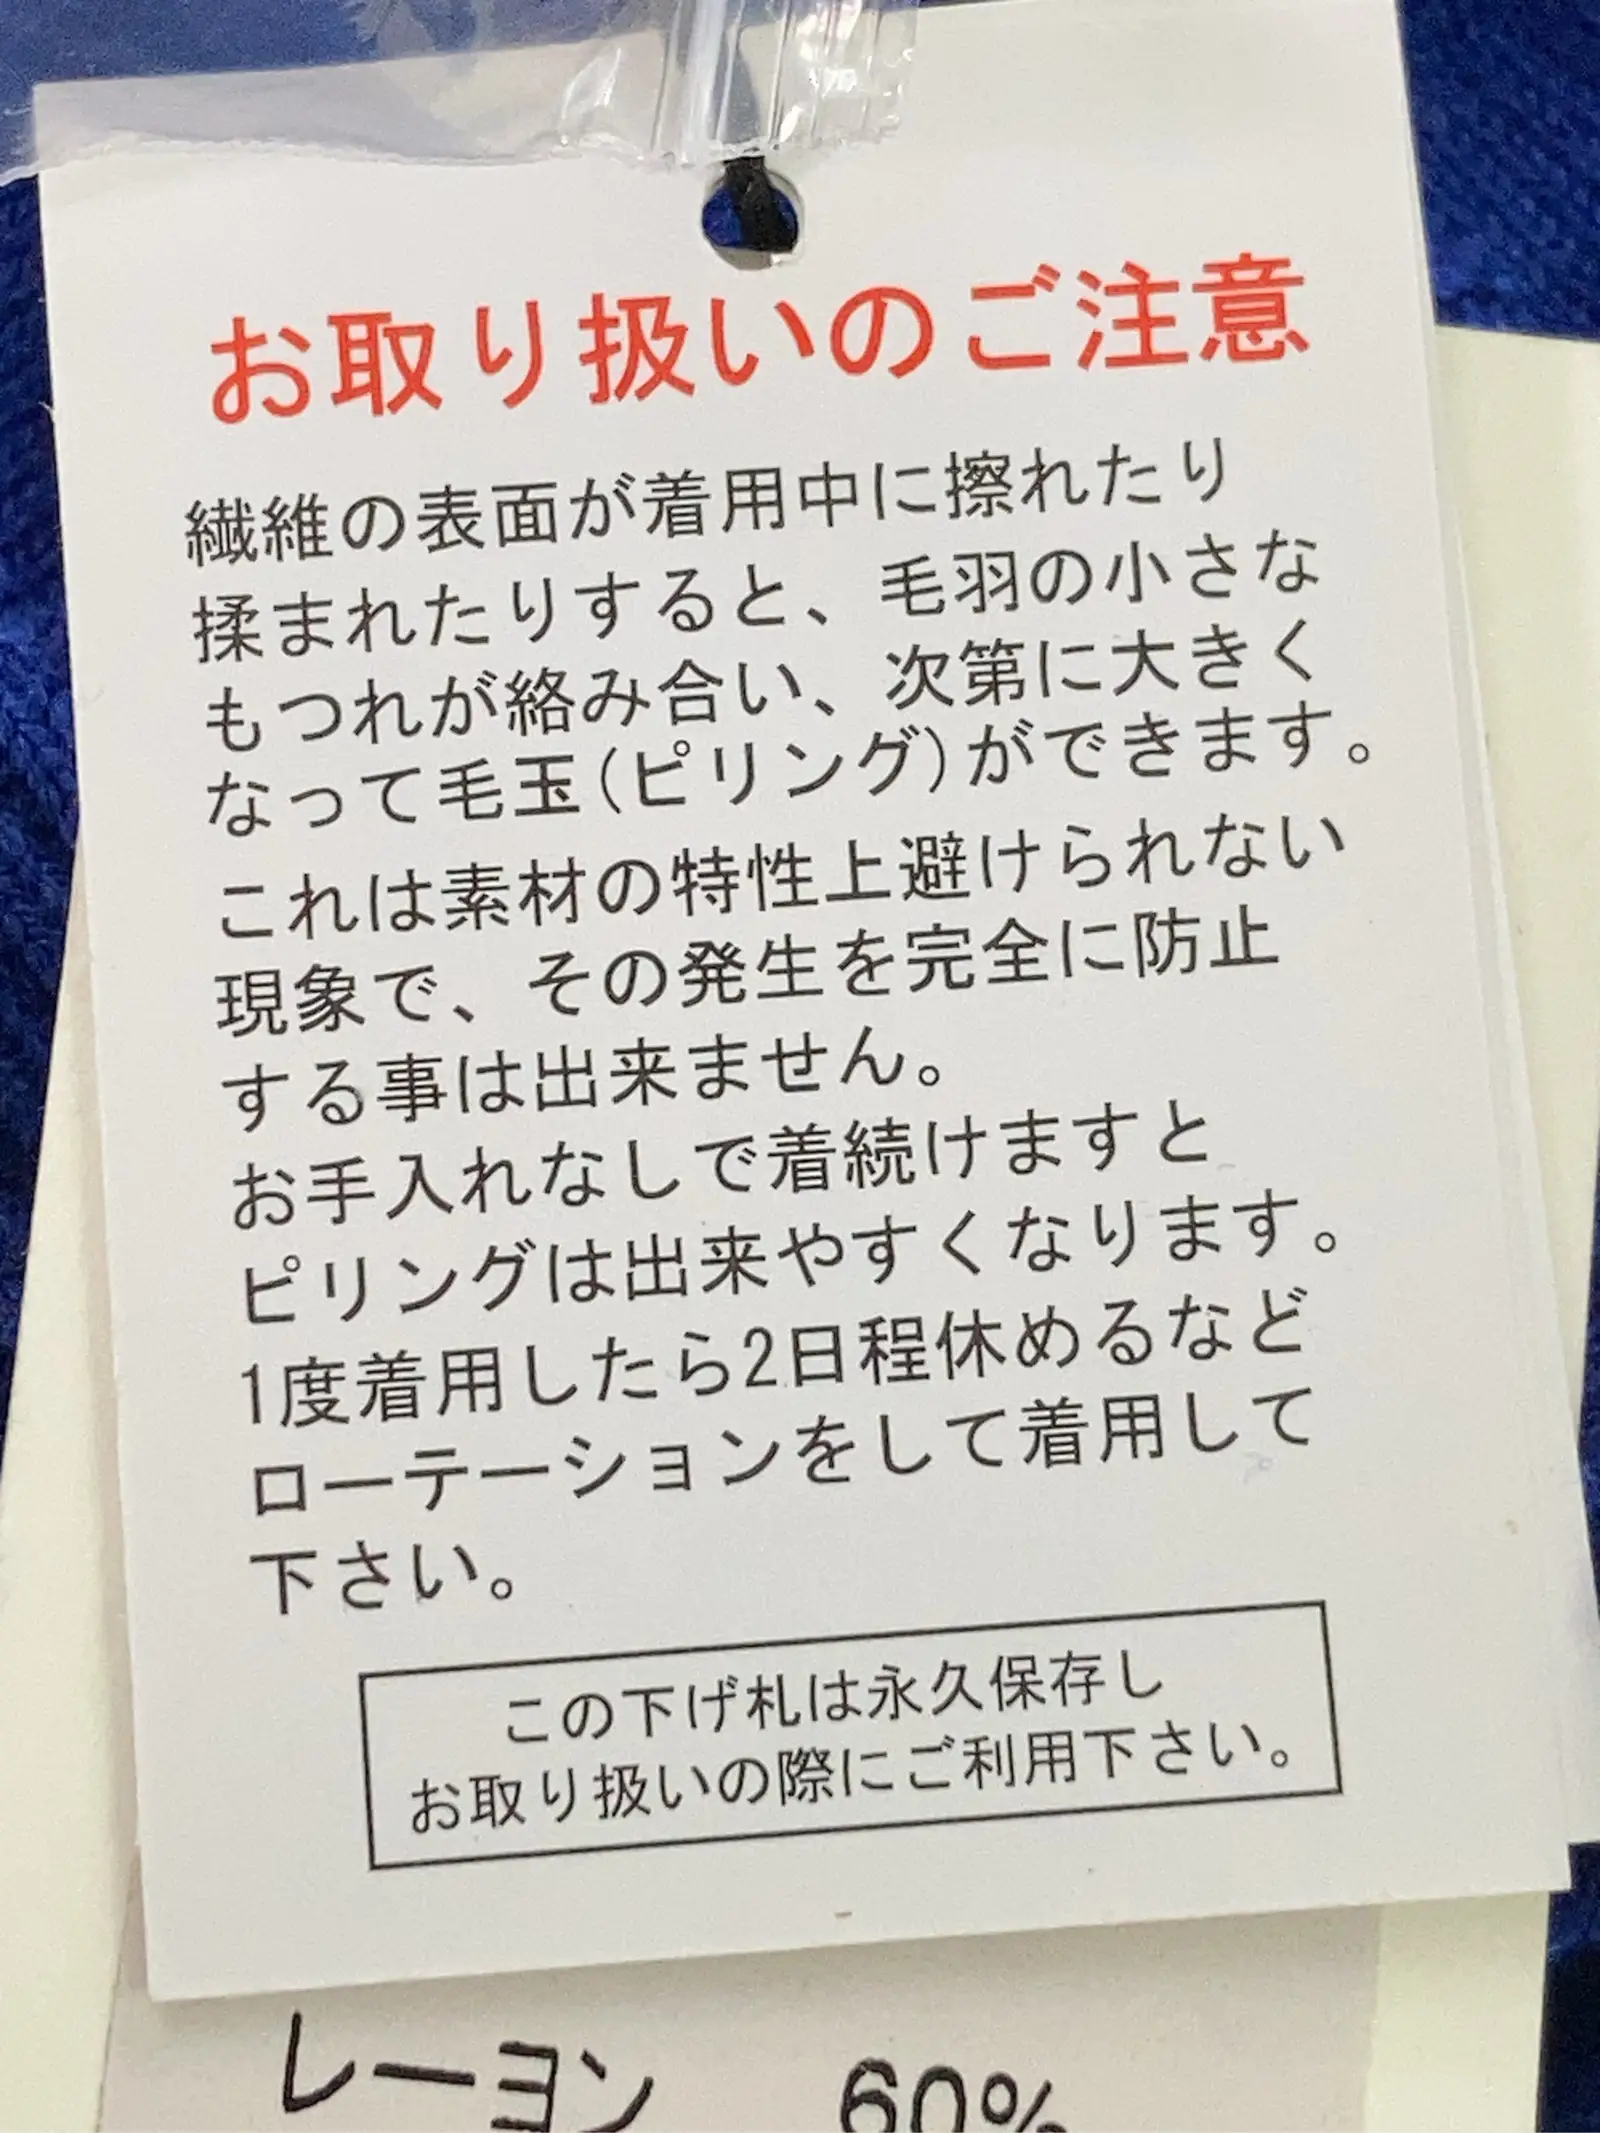 お取り扱いのご注意
繊維の表面が着用中に擦れたり
揉まれたりすると、毛羽の小さな
もつれが絡み合い、次第に大きく
なって毛玉(ピリング)ができます。
これは素材の特性上避けられない
現象で、その発生を完全に防止
する事は出来ません。
お手入れなしで着続けますと
ピリングは出来やすくなります。
1度着用したら2日程休めるなど
ローテーションをして着用して
下さい。
この下げ札は永久保存し
お取り扱いの際にご利用下さい。
レーヨン 60%